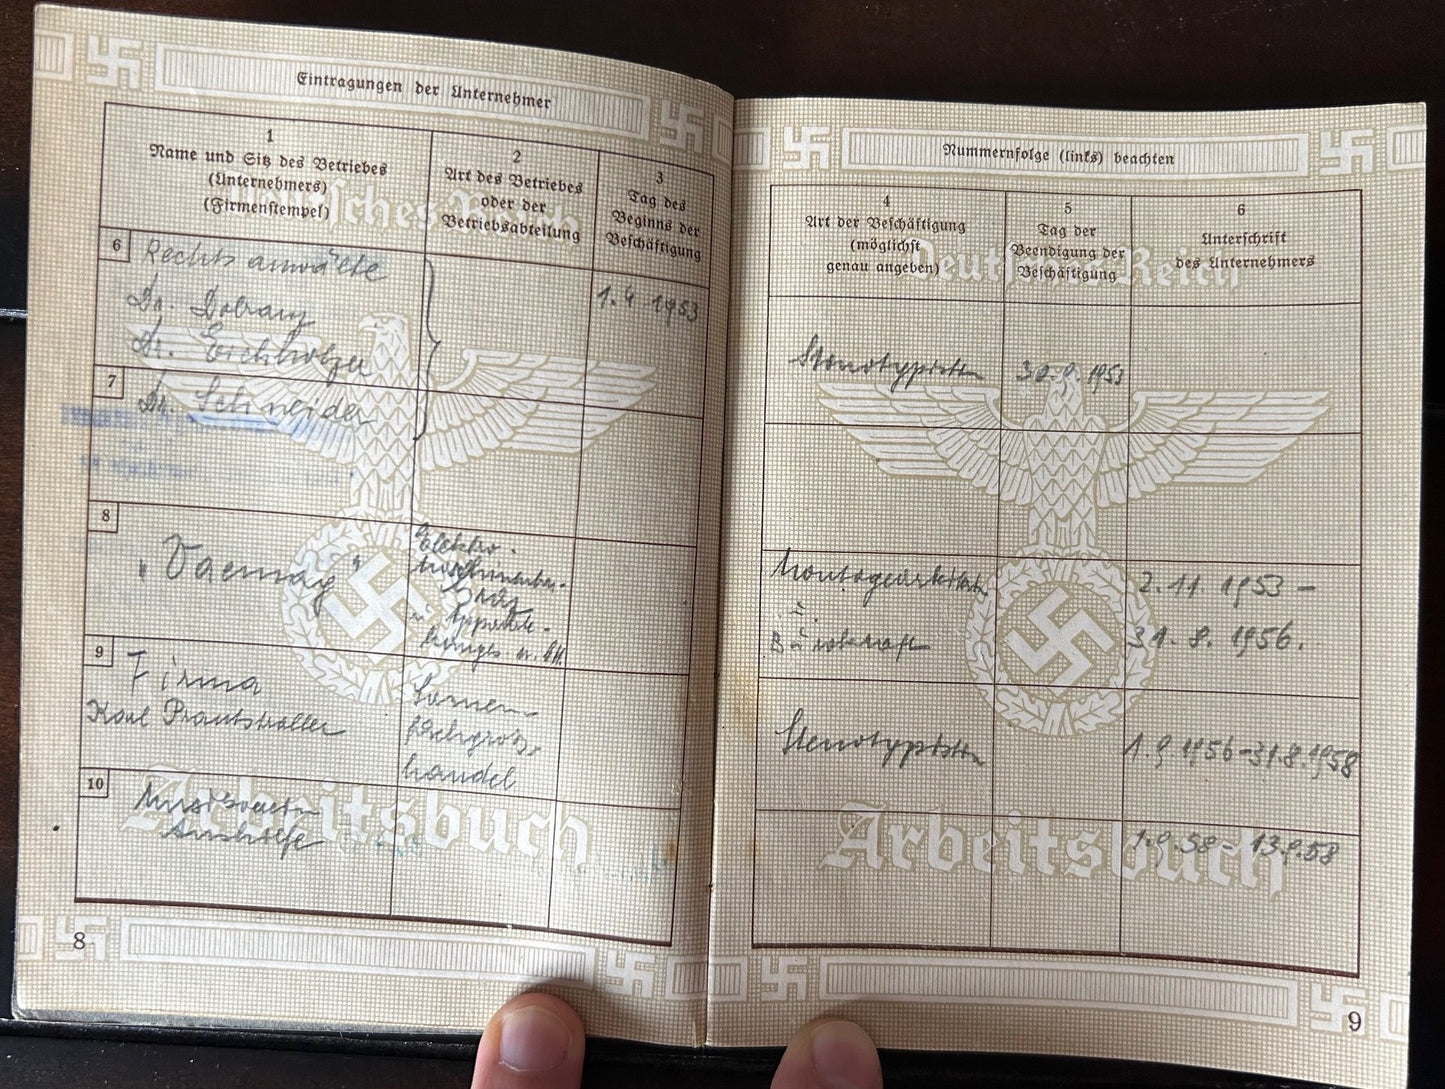 Eintragungen der Unternehmer
1
Name und Sitz des Betriebes
(Unternehmers)
(Firmenstempel)
2
Art des Betriebes
oder der
Betriebsabteilung
3
Tag des
Beginns der
Beschäftigung
6
Rechtsanwälte
Dr.
Dr. Eichholzer
1.4 1953
7
Dr. Schneider
8
Elektro-
u. Apparate-
9
Firma
Karl
Samen
handel
10
Aushilfe
Deutsches Reich
Arbeitsbuch
8
Nummernfolge (links) beachten
4
Art der Beschäftigung
(möglichst
genau angeben)
5
Tag der
Beendigung der
Beschäftigung
6
Unterschrift
des Unternehmers
Stenotypistin 30.9.1953
Montagearbeiterin 2.11.1953 –
Bürokraft 31.8.1956.
Stenotypistin 1.9.1956-31.8.1958
1.9.58 - 13.9.58
Deutsches Reich
Arbeitsbuch
9